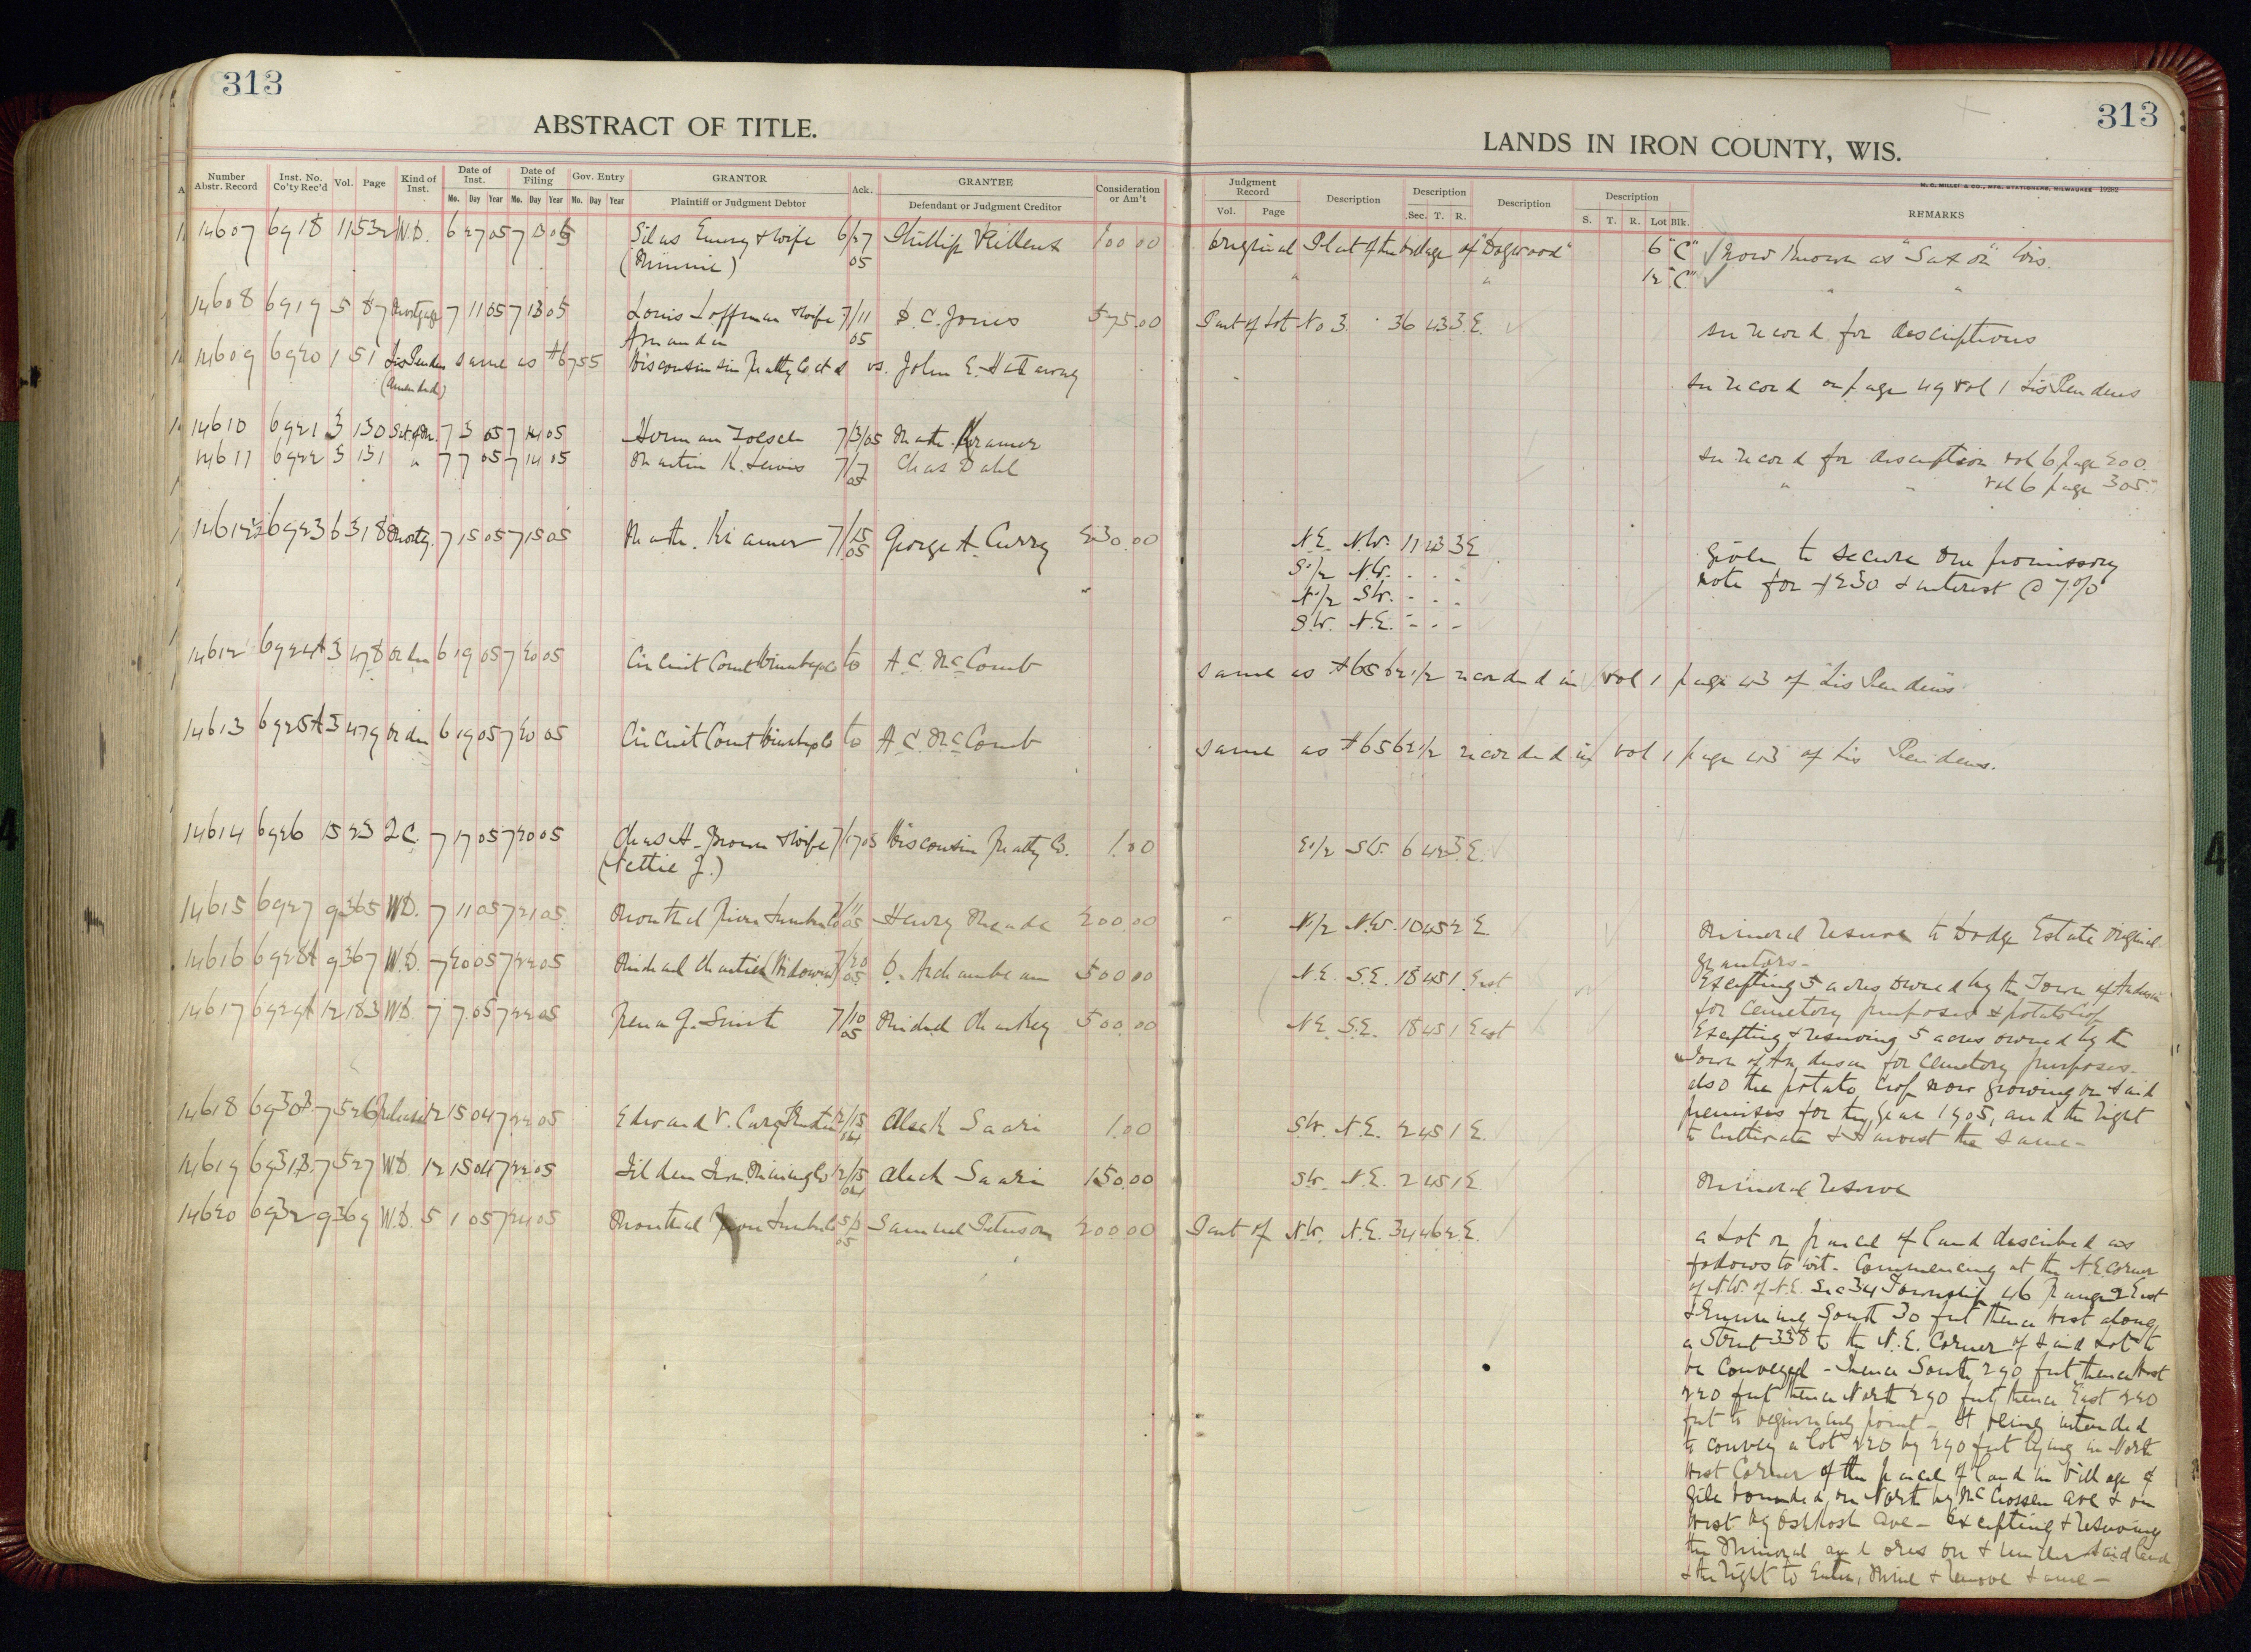 313
ABSTRACT OF TITLE.
Number Abstr. Record Inst. No. Co'ty Rec'd Vol. Page Kind of Inst. Date of Inst. Date of Filing Gov. Entry GRANTOR Ack. GRANTEE Consideration or Am't
Mo. Day Year Mo. Day Year Mo. Day Year Plaintiff or Judgment Debtor Defendant or Judgment Creditor
14607 6918 11 532 W.D. 6 27 05 7 13 05 Silas Emery & wife 6/27 Phillip 100 00
(Minnie) 05
14608 6919 5 87 Mortgage 7 11 05 7 13 05 Louis Loffman & wife 7/11 D. C. Jones 575.00
Amanda 05
14609 6920 1 51 Lis Pendens same as #6755 Wisconsin Realty Co et al vs. John E. Hathaway
(Amended)
14610 6921 3 130 Sat. of M. 7 3 05 7 14 05 Herman 7/3/05 Math. Kramer
14611 6922 3 131 " 7 7 05 7 14 05 Martin K. Lewis 7/7 Chas Dahl
05
14611½ 6923 6 318 Mortg. 7 15 05 7 15 05 Math. Kramer 7/15 George A. Curry 230.00
05
14612 6924A 3 478 Order 6 19 05 7 20 05 Circuit Court Winnebago Co to A. C. McComb
14613 6925A 3 479 Order 6 19 05 7 20 05 Circuit Court Winnebago Co to A. C. McComb
14614 6926 15 23 2 C. 7 17 05 7 20 05 Chas H. Brown & wife 7/17 05 Wisconsin Realty Co. 1.00
(Nettie J.)
14615 6927 9 365 W.D. 7 11 05 7 21 05 Montreal River Lumber Co 7/11 05 Henry Meade 200.00
14616 6928A 9 367 W.D. 7 20 05 7 22 05 Michael (Widower) 7/20 05 O. Archambeau 500 00
14617 6929A 12 183 W.D. 7 7 05 7 22 05 Rena J. Smith 7/10 05 Michael 500.00
14618 6930B. 7 526 Release 12 15 04 7 22 05 Edward V. Cary Trustee 12/15 04 Aleck Saari 1.00
14619 6931B. 7 527 W.D. 12 15 04 7 22 05 Tilden Iron Mining Co 12/15 04 Aleck Saari 150.00
14620 6932 9 369 W.D. 5 1 05 7 24 05 Montreal River Lumber Co 5/3 05 Samuel Peterson 200 00
313
LANDS IN IRON COUNTY, WIS.
M. C. MILLET & CO., MFG. STATIONERS, MILWAUKEE 19282
Judgment Record Description Description Description Description REMARKS
Vol. Page Sec. T. R. S. T. R. Lot Blk.
Original Plat of the Village of "Dogwood" 6 "C" ✓ now known as "Saxon" Wis.
" " 12 "C" ✓ " "
Part of Lot No 3. 36 43 3 E. see record for descriptions
see record on page 49 vol 1 Lis Pendens
see record for description vol 6 page 200.
" " vol 6 page 305"
N.E. N.W. 11 43 3 E Given to secure one promissory
S.½ N.W. " " " note for $230 & interest @ 7%
N.½ S.W. " " "
S.W. N.E. " " "
same as #6562½ recorded in vol 1 page 43 of "Lis Pendens"
same as #6562½ recorded in vol 1 page 43 of Lis Pendens.
E.½ S.W. 6 42 3 E.
N.½ N.W. 10 45 2 E. Mineral reserve to Dodge Estate Original
grantors.
N.E. S.E. 18 45 1 East Excepting 5 acres owned by the Town of Anderson
for Cemetery purposes & potato Crop
N.E. S.E. 18 45 1 East Excepting & reserving 5 acres owned by the
Town of Anderson for Cemetery purposes.
also the potato crop now growing on said
premises for the year 1905, and the right
to Cultivate & Harvest the same.
S.W. N.E. 2 45 1 E.
S.W. N.E. 2 45 1 E. Mineral reserve
Part of N.W. N.E. 34 46 2 E. a Lot or parcel of land described as
follows to wit. Commencing at the N.E. Corner
of N.W. of N.E. Sec 34 Township 46 Range 2 East
& running South 30 feet thence West along
a Street 338 to the N.E. Corner of said Lot to
be Conveyed - Thence South 290 feet thence West
220 feet thence North 290 feet, thence East 220
feet to beginning point - It being intended
to convey a lot 220 by 290 feet lying in North
West Corner of the parcel of land in Village of
Gile bounded on North by McCrossen ave & on
West by Oshkosh Ave - Excepting & reserving
the Mineral and ores on & under said land
& the right to Enter, Mine & Remove same -